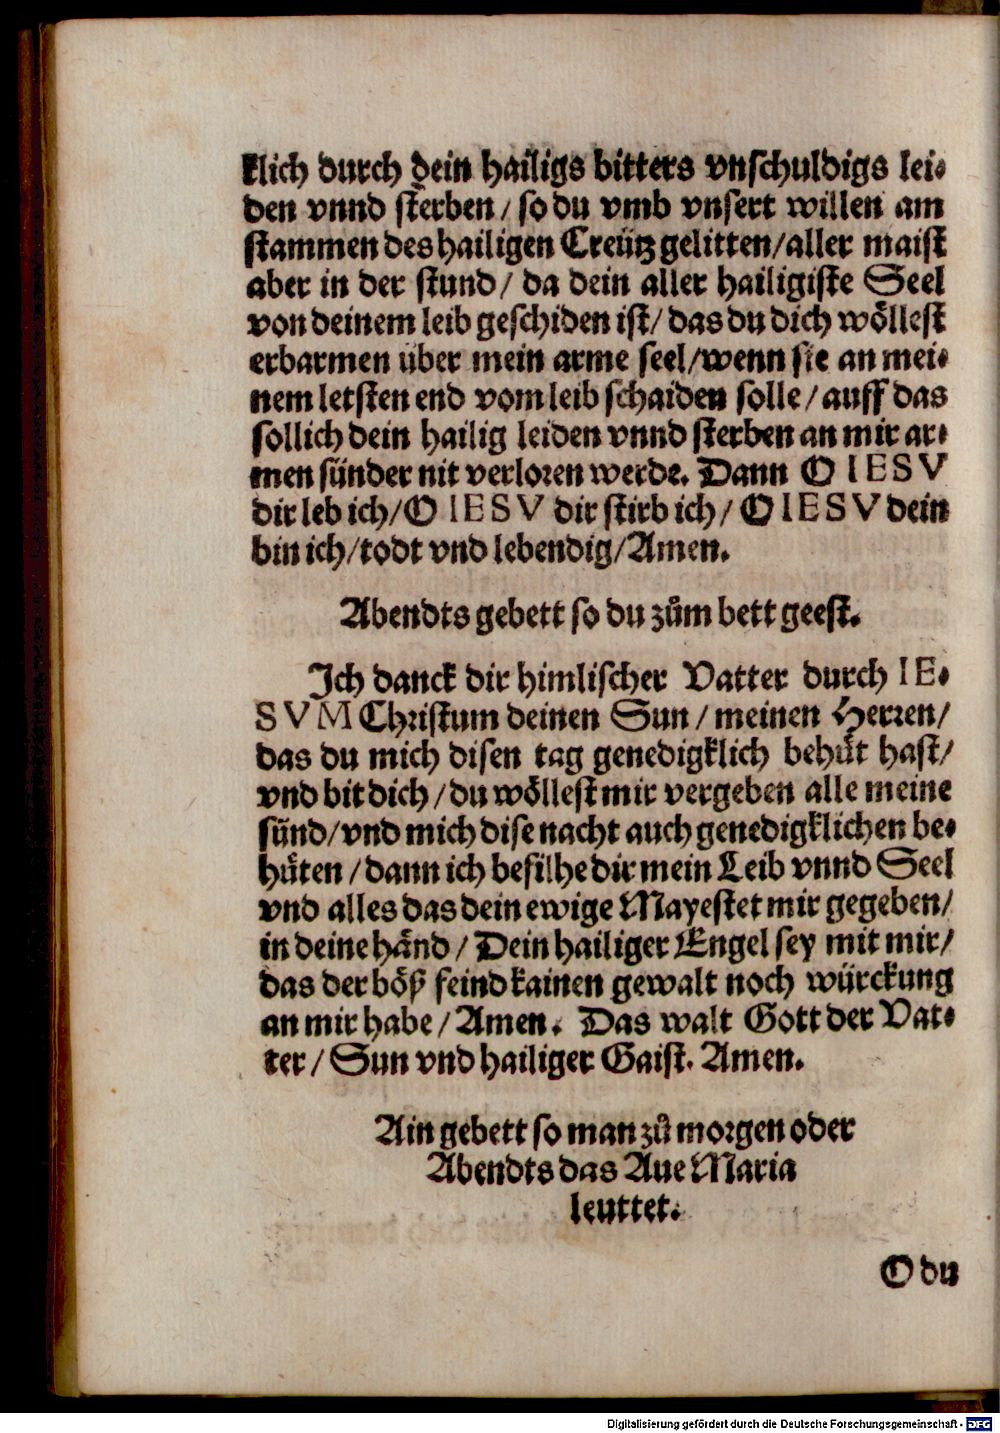 klich durch dein hailigs bitters vnschuldigs lei-
den vnnd sterben / so du vmb vnsert willen am
stammen des hailigen Creütz gelitten/aller maist
aber in der stund/ da dein aller hailigiste Seel
von deinem leib geschiden ist/ das du dich wöllest
erbarmen über mein arme seel/wenn sie an mei-
nem letsten end vom leib schaiden solle / auff das
sollich dein hailig leiden vnnd sterben an mir ar-
men sünder nit verloren werde. Dann O IESV
dir leb ich/O IESV dir stirb ich/ O IESV dein
bin ich/todt vnd lebendig/Amen.
Abendts gebett so du zům bett geest.
Ich danck dir himlischer Vatter durch IE-
SVM Christum deinen Sun / meinen Herren/
das du mich disen tag genedigklich behüt hast/
vnd bit dich / du wöllest mir vergeben alle meine
sünd/vnd mich dise nacht auch genedigklichen be-
hüten / dann ich befilhe dir mein Leib vnnd Seel
vnd alles das dein ewige Mayestet mir gegeben/
in deine händ / Dein hailiger Engel sey mit mir/
das der böß feind kainen gewalt noch würckung
an mir habe / Amen. Das walt Gott der Vat-
ter / Sun vnd hailiger Gaist. Amen.
Ain gebett so man zů morgen oder
Abendts das Aue Maria
leuttet.
O du
Digitalisierung gefördert durch die Deutsche Forschungsgemeinschaft - DFG